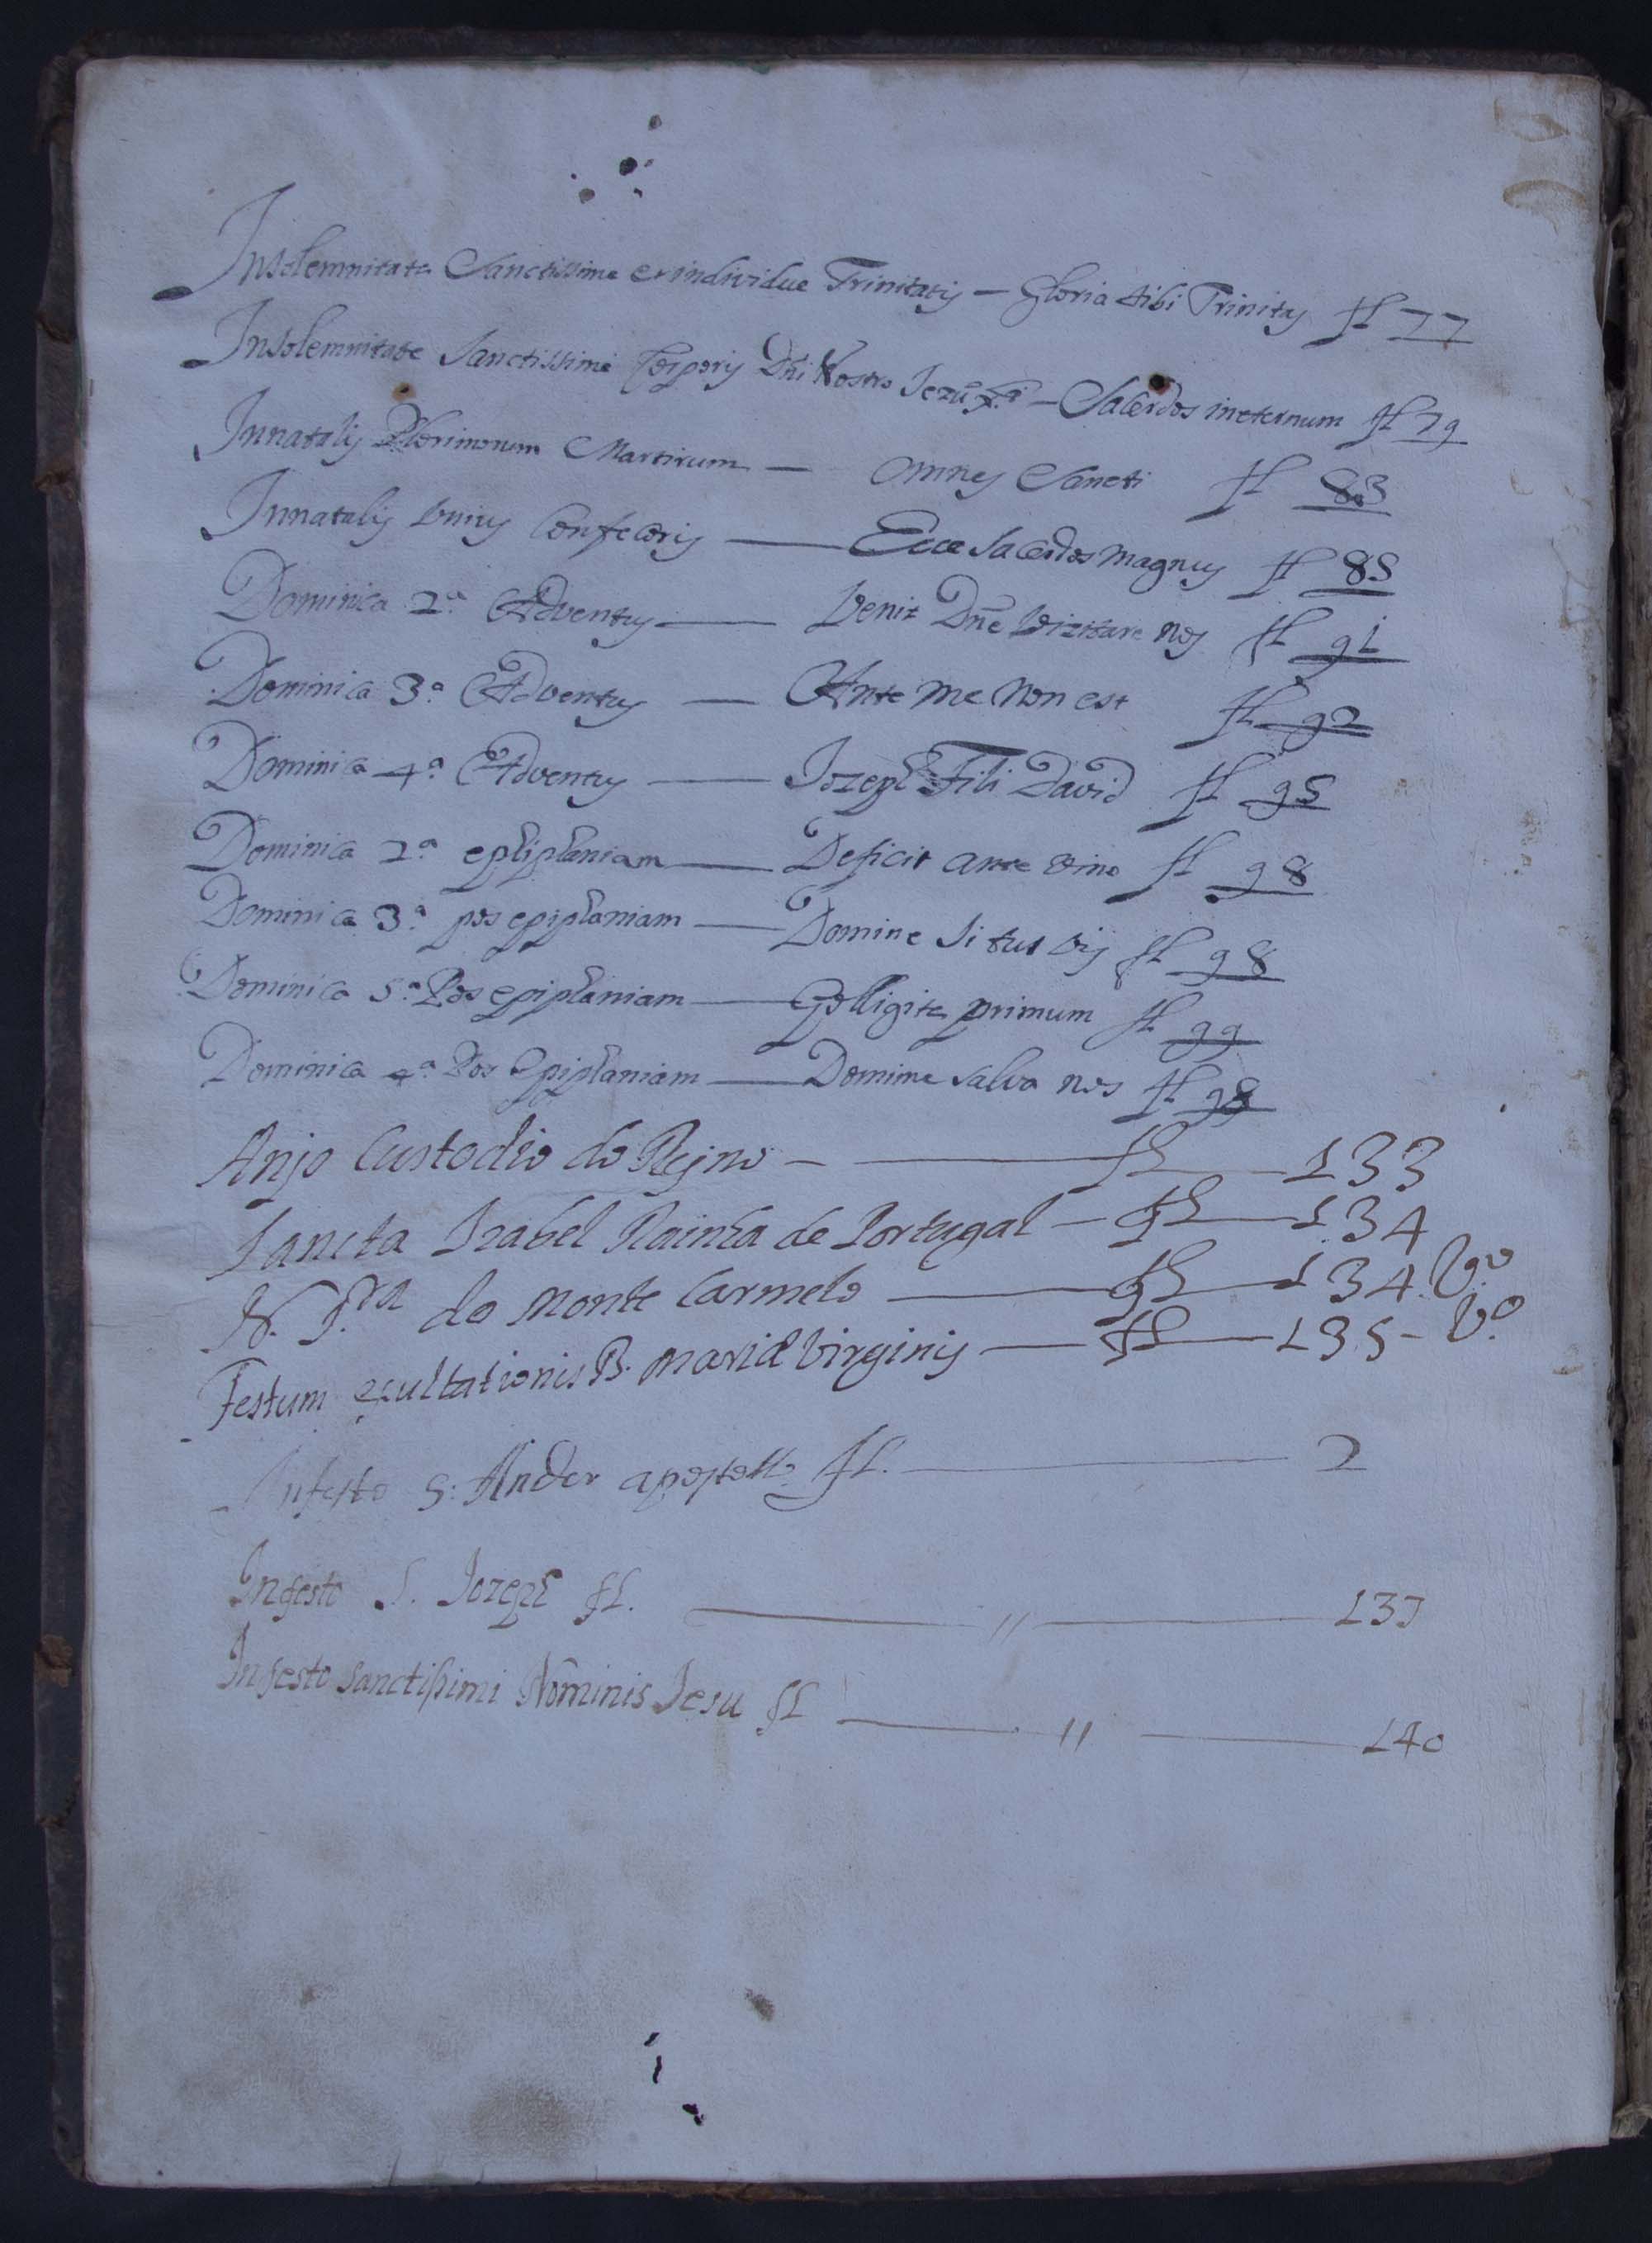 In solemnitate Sanctissime et individue Trinitatis — Gloria tibi Trinitas fl 77
In solemnitate Sanctissimi Corporis Dñi Nostro Jezũ Xpi — Sacerdos in eternum fl 79
In natalis Plorimorum Martirum — Omnes Sancti fl 83
In natalis Unius Confecoris — Ecce Sacerdos magnus fl 85
Dominica 2ª Adventus — Venit Dñe Vizitare nos fl 91
Dominica 3ª Adventus — Ante me non est fl 92
Dominica 4ª Adventus — Jozeph Fili David fl 95
Dominica 2ª ephiphaniam — Deficit ante vino fl 98
Dominica 3ª pos epiphaniam — Domine si tu vis fl 98
Dominica 5ª Pos epiphaniam — Colligite primum fl 99
Dominica 4ª Pos Epiphaniam — Domine salva nos fl 98
Anjo Custodio do Rejno — fl — 133
Sancta Izabel Rainha de Portugal — fl — 134
N. Sra do Monte Carmelo — fl — 134. Vº
Festum exultationis B. Mariæ Virginis — fl — 135 - Vº
In festo S: Ander apostollo fl. — 2
In festo S. Jozeph fl. — // — 137
In festo Sanctissimi Nominis Jesu fl — // — 140